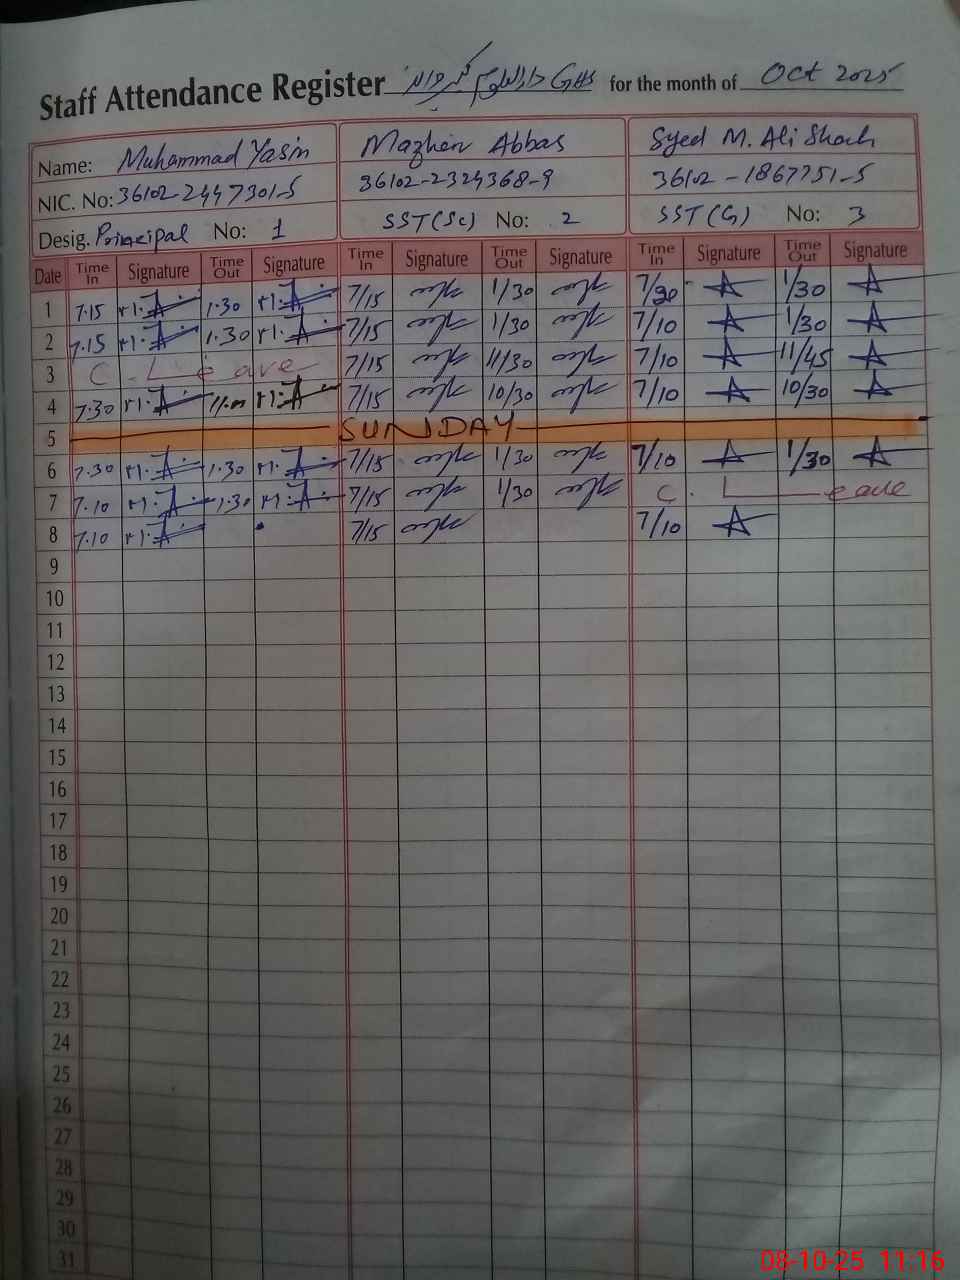 Staff Attendance Register GHS for the month of Oct 2025
Name: Muhammad Yasin Mazher Abbas Syed M. Ali Shah
NIC. No: 36102-2447301-5 36102-2324368-9 36102-1867751-5
Desig. Principal No: 1 SST(Sc) No: 2 SST(G) No: 3
Date Time In Signature Time Out Signature Time In Signature Time Out Signature Time In Signature Time Out Signature
1 7.15 1.30 7/15 1/30 7/30 1/30
2 7.15 1.30 7/15 1/30 7/10 1/30
3 C. Leave 7/15 11/30 7/10 11/45
4 7.30 7/15 10/30 7/10 10/30
5 SUNDAY
6 7.30 1.30 7/15 1/30 7/10 1/30
7 7.10 1.30 7/15 1/30 C. Leave
8 7.10 7/15 7/10
9
10
11
12
13
14
15
16
17
18
19
20
21
22
23
24
25
26
27
28
29
30
31
08-10-25 11:16